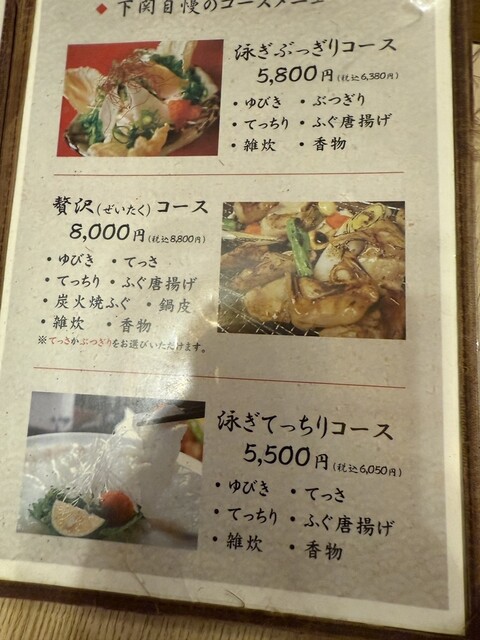 ◆ 下関自慢のコースメニュー
泳ぎぶっぎりコース
5,800円(税込6,380円)
・ゆびき ・ぶつぎり
・てっちり ・ふぐ唐揚げ
・雑炊 ・香物
贅沢(ぜいたく)コース
8,000円(税込8,800円)
・ゆびき ・てっさ
・てっちり ・ふぐ唐揚げ
・炭火焼ふぐ ・鍋皮
・雑炊 ・香物
※てっさかぶつぎりをお選びいただけます。
泳ぎてっちりコース
5,500円(税込6,050円)
・ゆびき ・てっさ
・てっちり ・ふぐ唐揚げ
・雑炊 ・香物